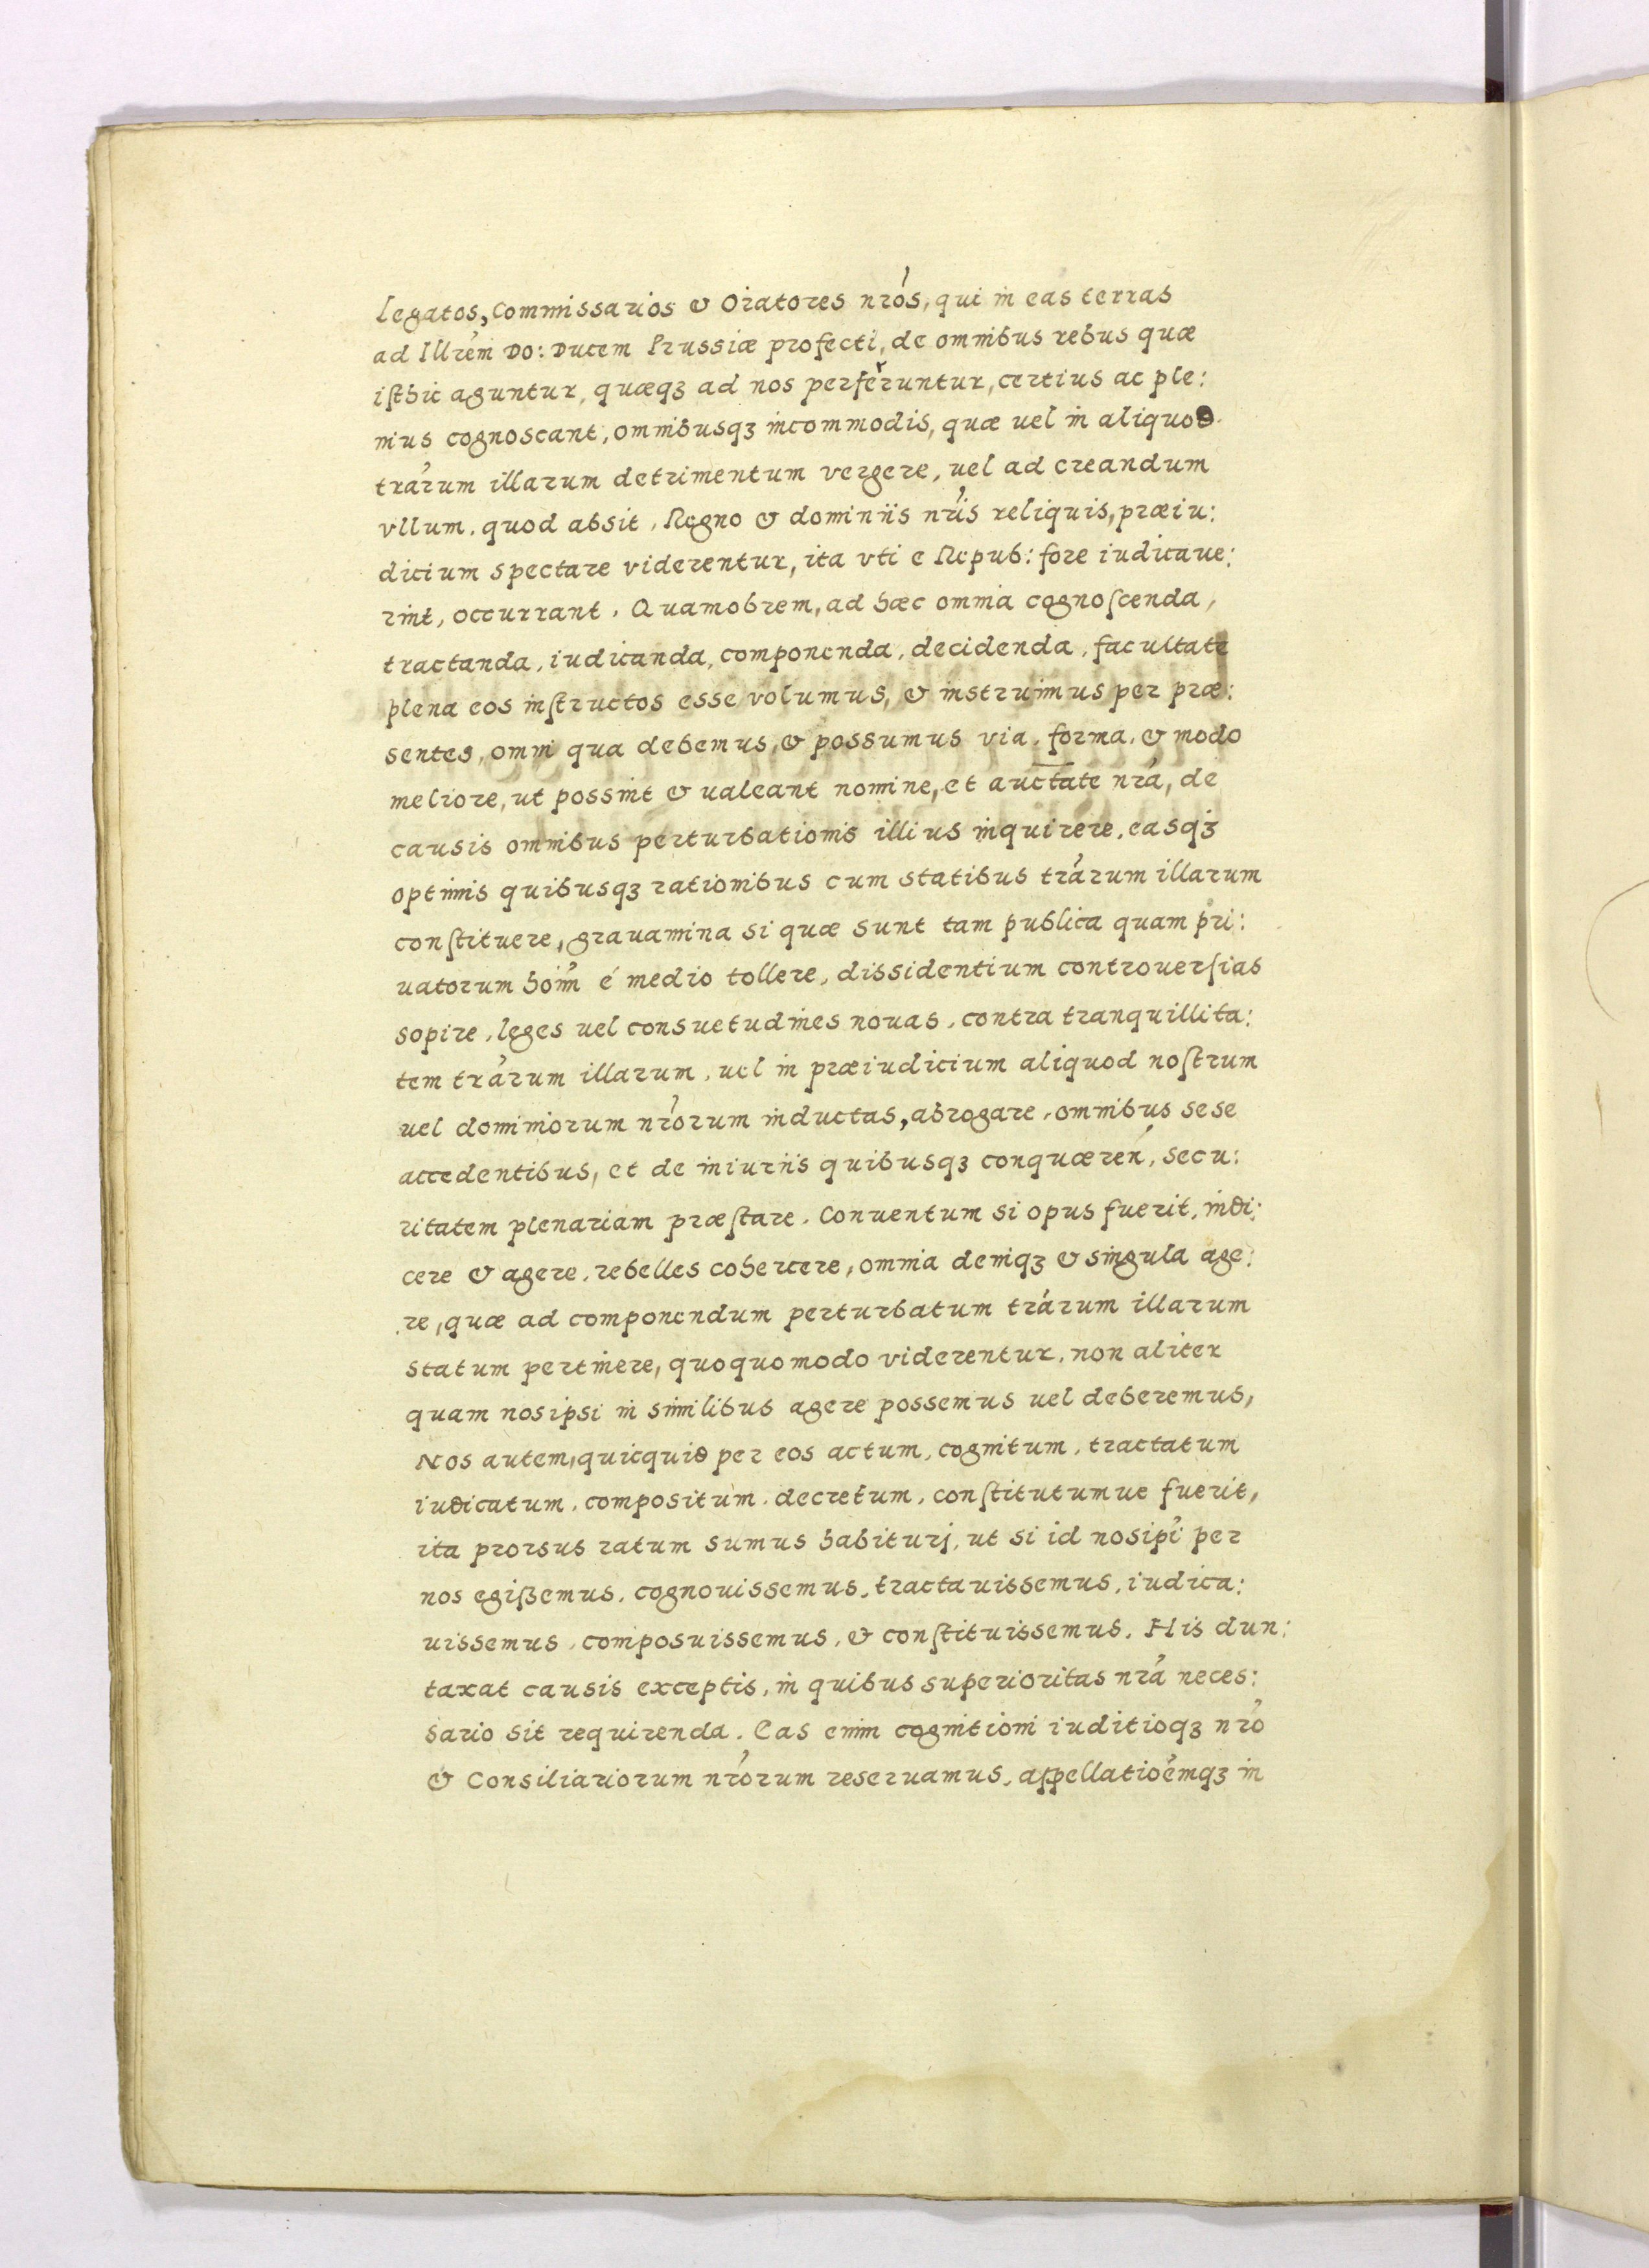 Legatos, Commissarios & Oratores nr̃os, qui in eas terras
ad Illrẽm Do: Ducem Prussiæ profecti, de omnibus rebus quæ
isthic aguntur, quæqȝ ad nos perferuntur, certius ac ple:
nius cognoscant, omnibusqȝ incommodis, quæ uel in aliquod
trãrum illarum detrimentum vergere, uel ad creandum
vllum, quod absit, Regno & dominiis nr̃is reliquis, præiu:
dicium spectare viderentur, ita vti e Repub: fore iudicaue:
rint, occurrant. Quamobrem, ad hæc omnia cognoscenda,
tractanda, iudicanda, componenda, decidenda, facultate
plena eos instructos esse volumus, & instruimus per præ:
sentes, omni qua debemus, & possumus via, forma, & modo
meliore, ut possint & ualeant nomine, et auctate nrã, de
causis omnibus perturbationis illius inquirere, easqȝ
optimis quibusqȝ rationibus cum statibus trãrum illarum
constituere, grauamina si quæ sunt tam publica quam pri:
uatorum hoĩm é medio tollere, dissidentium controuersias
sopire, leges uel consuetudines nouas, contra tranquillita:
tem trãrum illarum, uel in præiudicium aliquod nostrum
uel dominiorum nr̃orum inductas, abrogare, omnibus sese
accedentibus, et de iniuriis quibusqȝ conquæreñ, secu:
ritatem plenariam præstare. Conuentum si opus fuerit, indi:
cere & agere, rebelles cohercere, omnia deniqȝ & singula age:
re, quæ ad componendum perturbatum trãrum illarum
statum pertinere, quoquomodo viderentur, non aliter
quam nosipsi in similibus agere possemus uel deberemus,
Nos autem, quicquid per eos actum, cognitum, tractatum
iudicatum, compositum, decretum, constitutumue fuerit,
ita prorsus ratum sumus habiturj, ut si id nosipĩ per
nos egißemus, cognouissemus, tractauissemus, iudica:
uissemus, composuissemus, & constituissemus. His dun:
taxat causis exceptis, in quibus superioritas nrã neces:
sario sit requirenda. Eas enim cognitioni iuditioqȝ nrõ
& Consiliariorum nr̃orum reseruamus, appellatiõemqȝ in